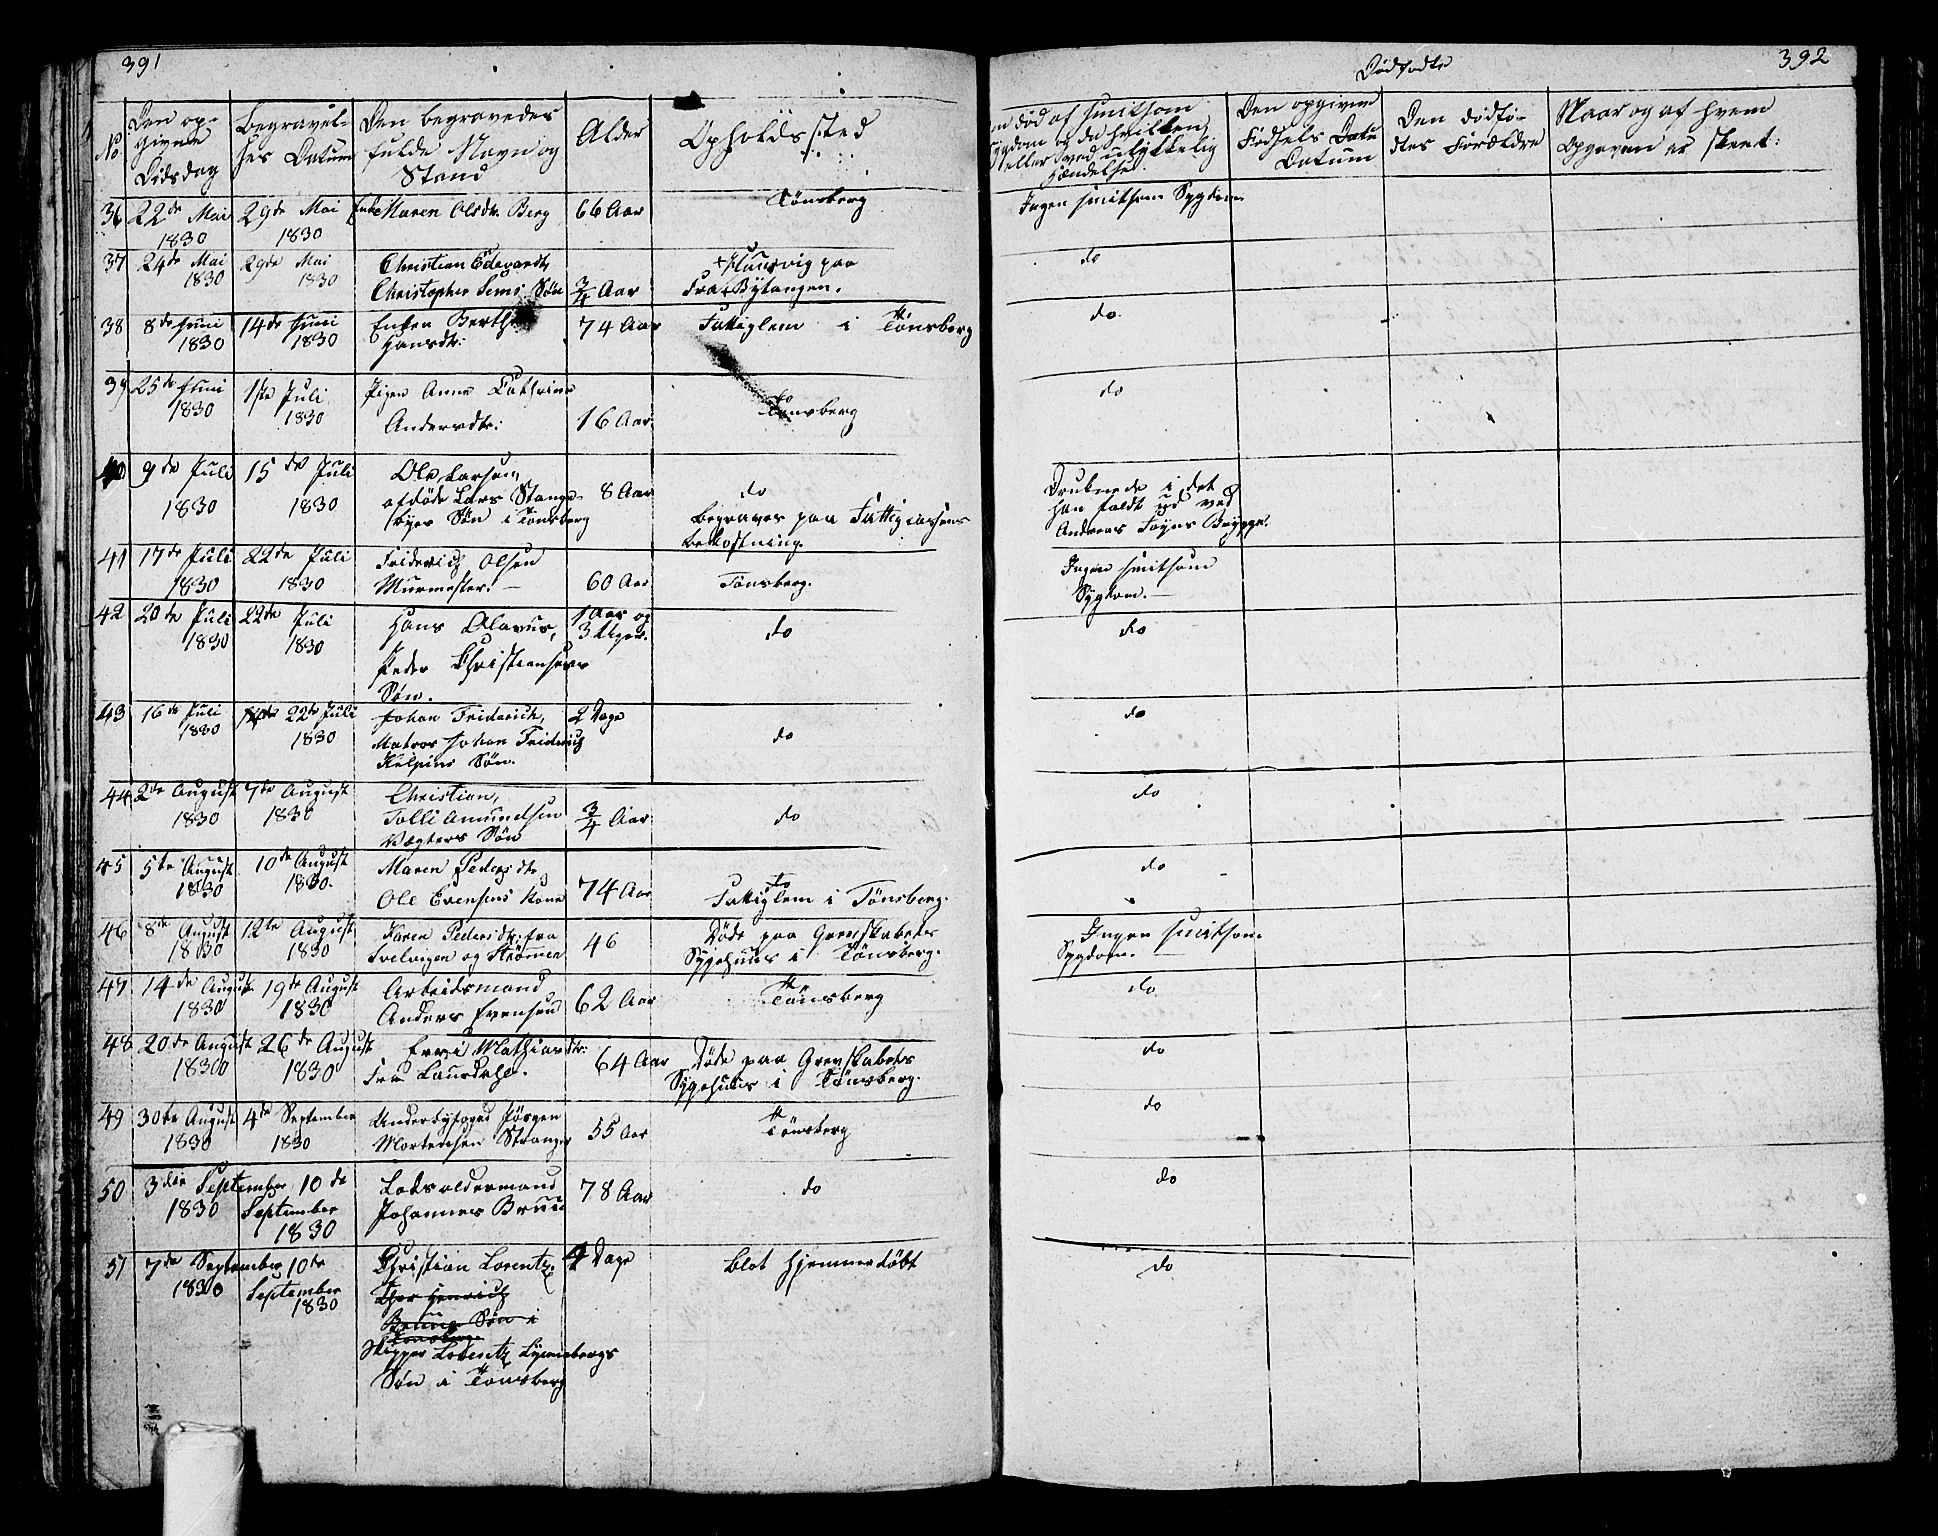 391
No
Den op-
givne
Dödsdag
Begravel-
ses Datum
Den begravedes
fulde Navn og
Stand
Alder
Opholdssted
36 22de Mai 1830 29de Mai 1830 Enke Maren Olsdtr. Berg 66 Aar Tönsberg
37 24de Mai 1830 29de Mai 1830 Christian Edevardt,
Christopher Sems Sön 3/4 Aar
paa
fra Bytangen.
38 8de Juni 1830 14de Juni 1830 Enken Berthe
Hansdtr: 74 Aar Fattiglem i Tönsberg
39 25de Juni 1830 1ste Juli 1830 Pigen Anne Cathrine
Andersdtr: 16 Aar. do
Tönsberg
40 9de Juli 1830 15de Juli 1830 Ole Larsen,
afdöde Lars Stange-
byes Sön i Tönsberg 8 Aar do
begraves paa Fattigcassens
bekostning.
41 17de Juli 1830 22de Juli 1830 Friderich Olsen
Murmester. 60 Aar Tönsberg.
42 20de Juli 1830 22de Juli 1830 Hans Olavus,
Peder Christiansens
Sön. 1 Aar og
3 Uger. do
43 16de Juli 1830 22de Juli 1830 Johan Friderich,
Matros Johan Friderich
Sön. 2 Dage do
44 2de August 1830 7de August 1830 Christian,
Tolli Amundsen
Vægters Sön 3/4 Aar do
45 5te August 1830 10de August 1830. Maren Pedersdtr,
Ole Evensens Kone 74 Aar do
Fattiglem i Tönsberg.
46 8de August 1830 12te August 1830 Karen Pedersdtr: fra
Svelvigen og Strömmen 46 Döde paa Grevskabets
Sygehuus i Tönsberg.
47 14de August 1830 19de August 1830 Arbeidsmand
Anders Evensen 62 Aar Tönsberg
48 20de August 1830 26de August 1830 Mathiasdtr:
fra Laurdahl. 64 Aar Döde paa Grevskabets
Sygehuus i Tönsberg.
49 30te August 1830 4de September 1830 Underbyfoged Jörgen
Mortensen Stranger 55 Aar Tönsberg
50 3die September 1830 10de September 1830 Lodsoldermand
Johannes Bruu 78 Aar do
51 7de September 1830 10de September 1830 Christian Lorentz, 4 Dage blot hjemmedöbt
Thor Henrich
Bruus Sön i
Tönsberg
Skipper Lorentz
Sön i Tönsberg
392
Dödfödte
Om död af smitsom
Sygdom og da hvilken,
eller ved ulykkelig
Hændelse.
Den opgivne
Födsels Datu
Datum
Den dödfö-
dtes Forældre
Naar og af hvem
Opgaven er skeet:
Ingen smitsom Sygdom
do
do
do
Druknede i det
han faldt ud ved
Andreas Foyns Brygge.
Ingen smitsom
Sygdom.
do
do
do
do
Ingen smitsom
Sygdom.
do
do
do
do
do